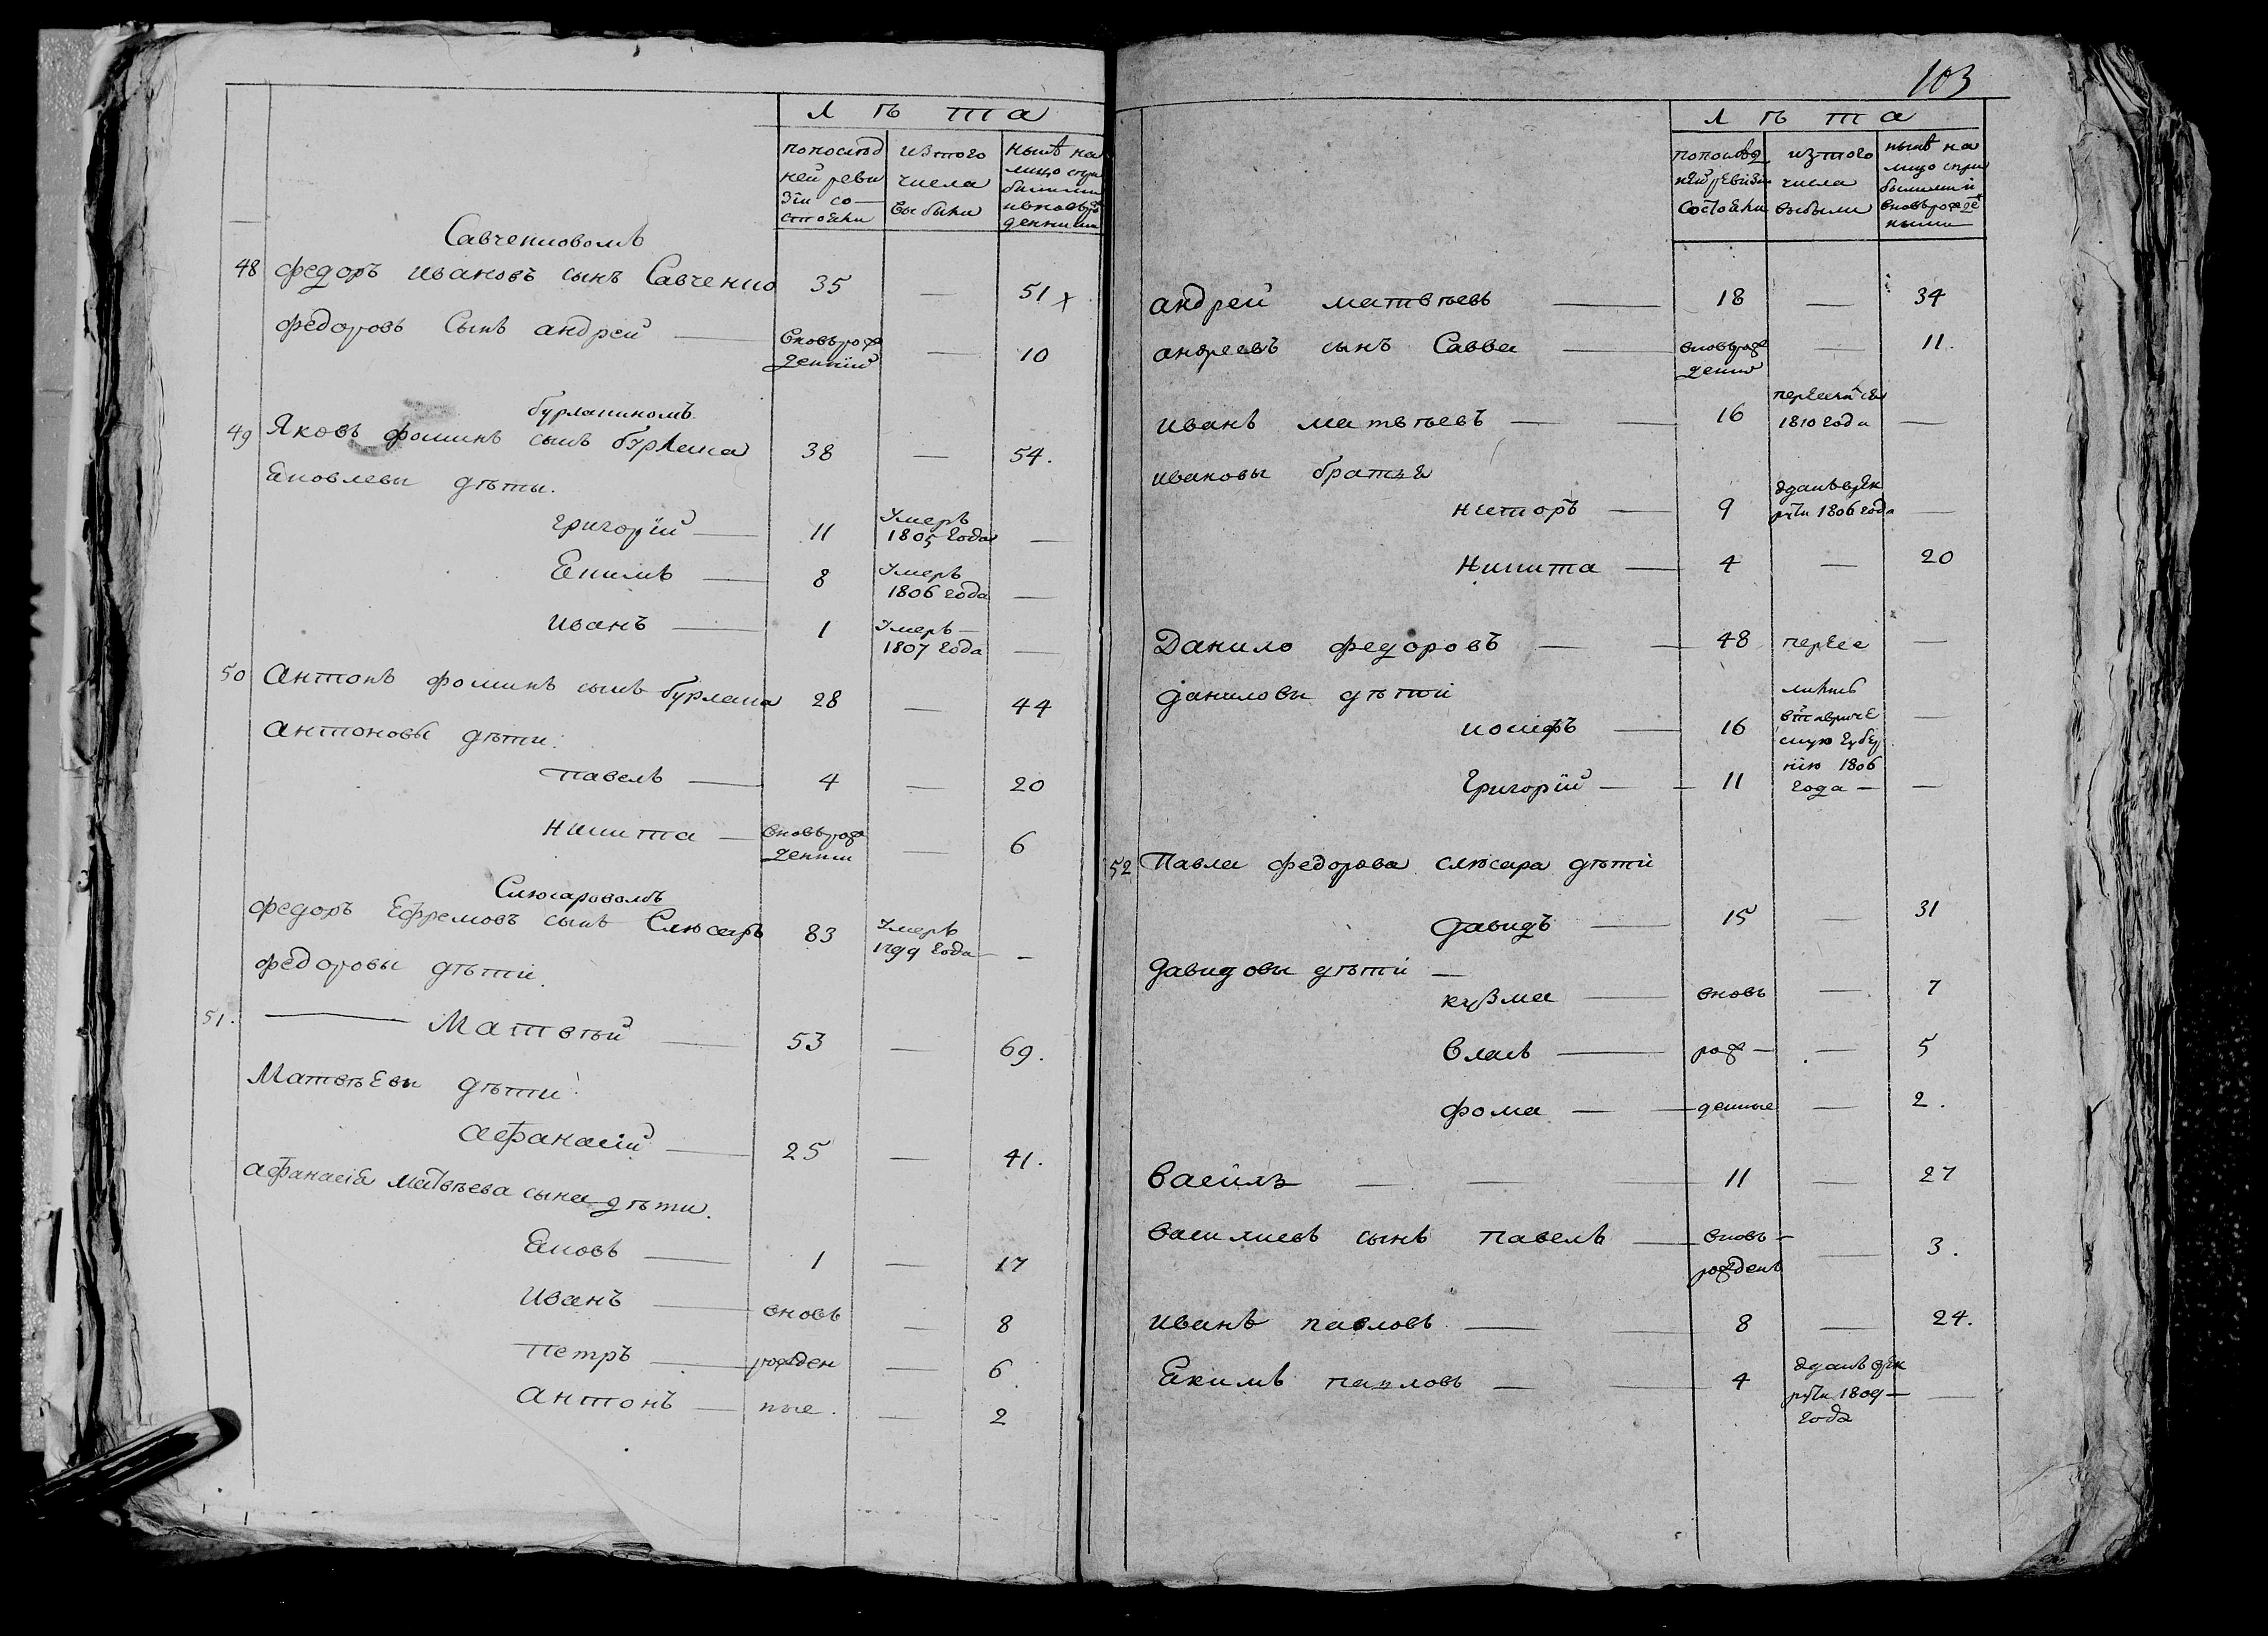 Л ѣ та
попослѣд ней реви зіи состояли
изтого числа выбыли
нынѣ на лицо спри былыми ивновьро жденными
Савченковомъ
48 федоръ ивановъ сынъ Савченко 35 — 51 х
федоровъ Сынъ андрей — вновьрож денній — 10
бурлакиномъ
49 Яковъ фоминъ сынъ бурлака 38 — 54.
Яковлевы дѣты.
григорій — 11 Умеръ 1805 года —
Екимъ — 8 Умеръ 1806 года —
иванъ — 1 Умеръ — 1807 года —
50 антонъ фоминъ сынъ бурлака 28 — 44
антоновы дѣти:
павелъ — 4 — 20
никита — вновьрож денни — 6
Слюсаровомъ
федоръ Ефремовъ сынъ Слюсаръ 83 Умеръ 1799 года — —
федоровы дѣти.
51. — Матвѣй — 53 — 69.
Матвѣевы дѣти:
афанасій — 25 — 41.
афанасія матвѣева сына дѣти.
Яковъ — 1 — 17
иванъ — вновь — 8
петръ — рожден — 6
антонъ — ные. — 2
103
Л ѣ та
попослѣд ней ревизіи состояли
изтого числа выбыли
нынѣ на лицо спри былыми и вновьрожде ными
андрей матвѣевъ — 18 — 34
андреевъ сынъ Савва — вновьрож дени — 11.
иванъ матвѣевъ — 16 1810 года —
ивановы братья
нисторъ — 9 рути 1806 года —
никита — 4 — 20
Данило федоровъ — 48 пересе —
даниловы дѣти
иосифъ — 16 линъ втавриче скую губер —
григорій — 11 нію 1806 года — —
52 Павла федорова слюсара дѣти
давидъ — 15 — 31
давидовы дѣти —
кузма — вновь — 7
власъ — рож — — 5
фома — денные — 2.
василь — 11 — 27
василиевъ сынъ павелъ — вновь — рожденъ — 3.
иванъ павловъ — 8 — 24.
Екимъ павловъ — 4 рути 1809 — года —